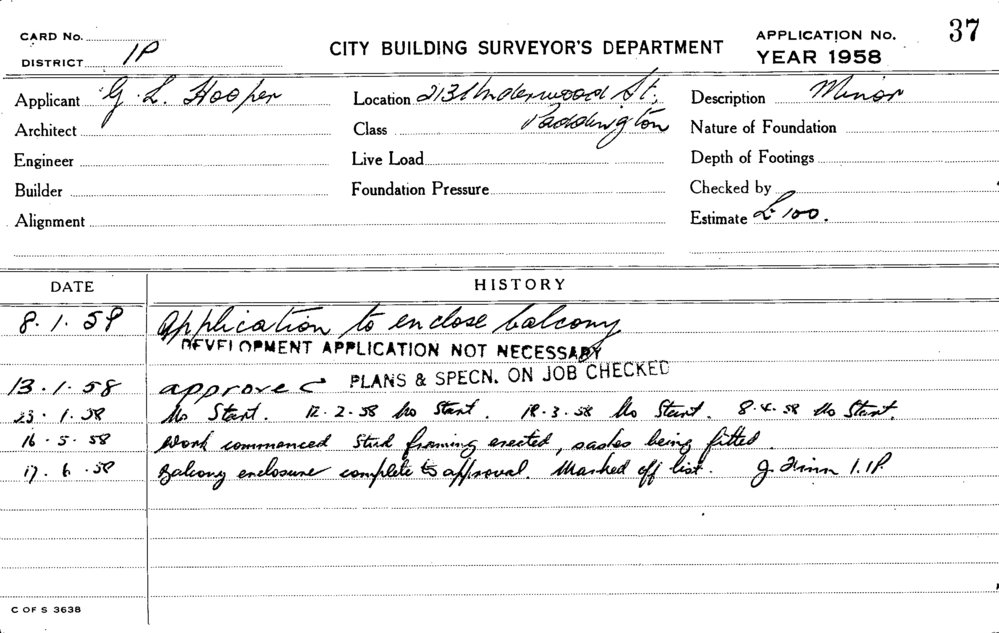 CARD No.
DISTRICT 1P
CITY BUILDING SURVEYOR'S DEPARTMENT
APPLICATION No. 37
YEAR 1958
Applicant G. L. Hooper
Location 213 Underwood St, Paddington
Description Minor
Architect
Class
Nature of Foundation
Engineer
Live Load
Depth of Footings
Builder
Foundation Pressure
Checked by
Alignment
Estimate £100.
DATE HISTORY
8.1.58 Application to enclose balcony
DEVELOPMENT APPLICATION NOT NECESSARY
13.1.58 approved PLANS & SPECN. ON JOB CHECKED
23.1.58 No Start. 12.2.58 No Start. 18.3.58 No Start. 8.4.58 No Start.
16.5.58 Work commenced Stud framing erected, sashes being fitted.
17.6.58 Balcony enclosure complete to approval. Marked off list. J. Finn 1.1P.
C OF S 3638